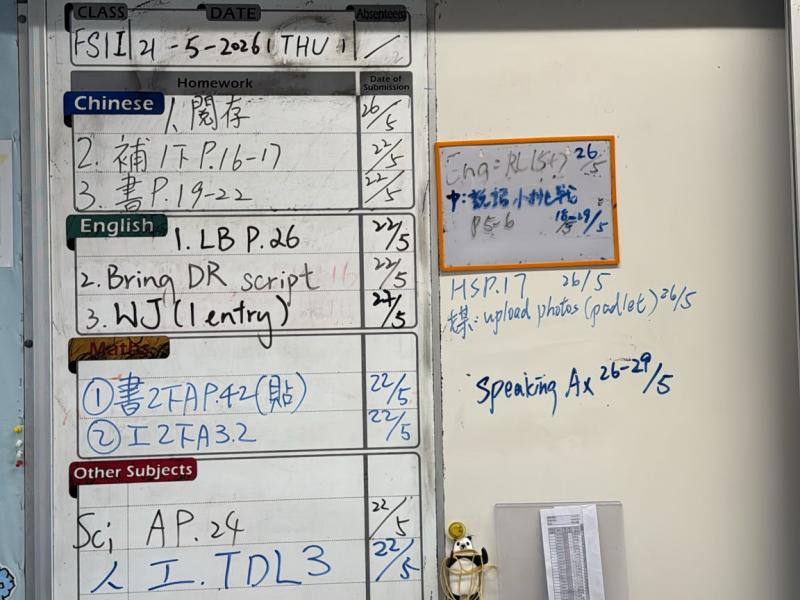 CLASS DATE Absentees
21-5-2026 THU
Homework Date of Submission
Chinese 1. 閱存 26/5
2. 補1下P.16-17 22/5
3. 書P.19-22 22/5
English
1. LB P.26 22/5
2. Bring DR script 22/5
3. WJ (1 entry) 27/5
Maths
① 書2下AP.42(貼) 22/5
② 工2下A3.2 22/5
Other Subjects
Sci AP.24 22/5
人 工.TDL3 22/5
26/5
中: 說話小挑戰
P5-6 18-29/5
HSP.17 26/5
upload photos (padlet) 26/5
Speaking Ax 26-29/5